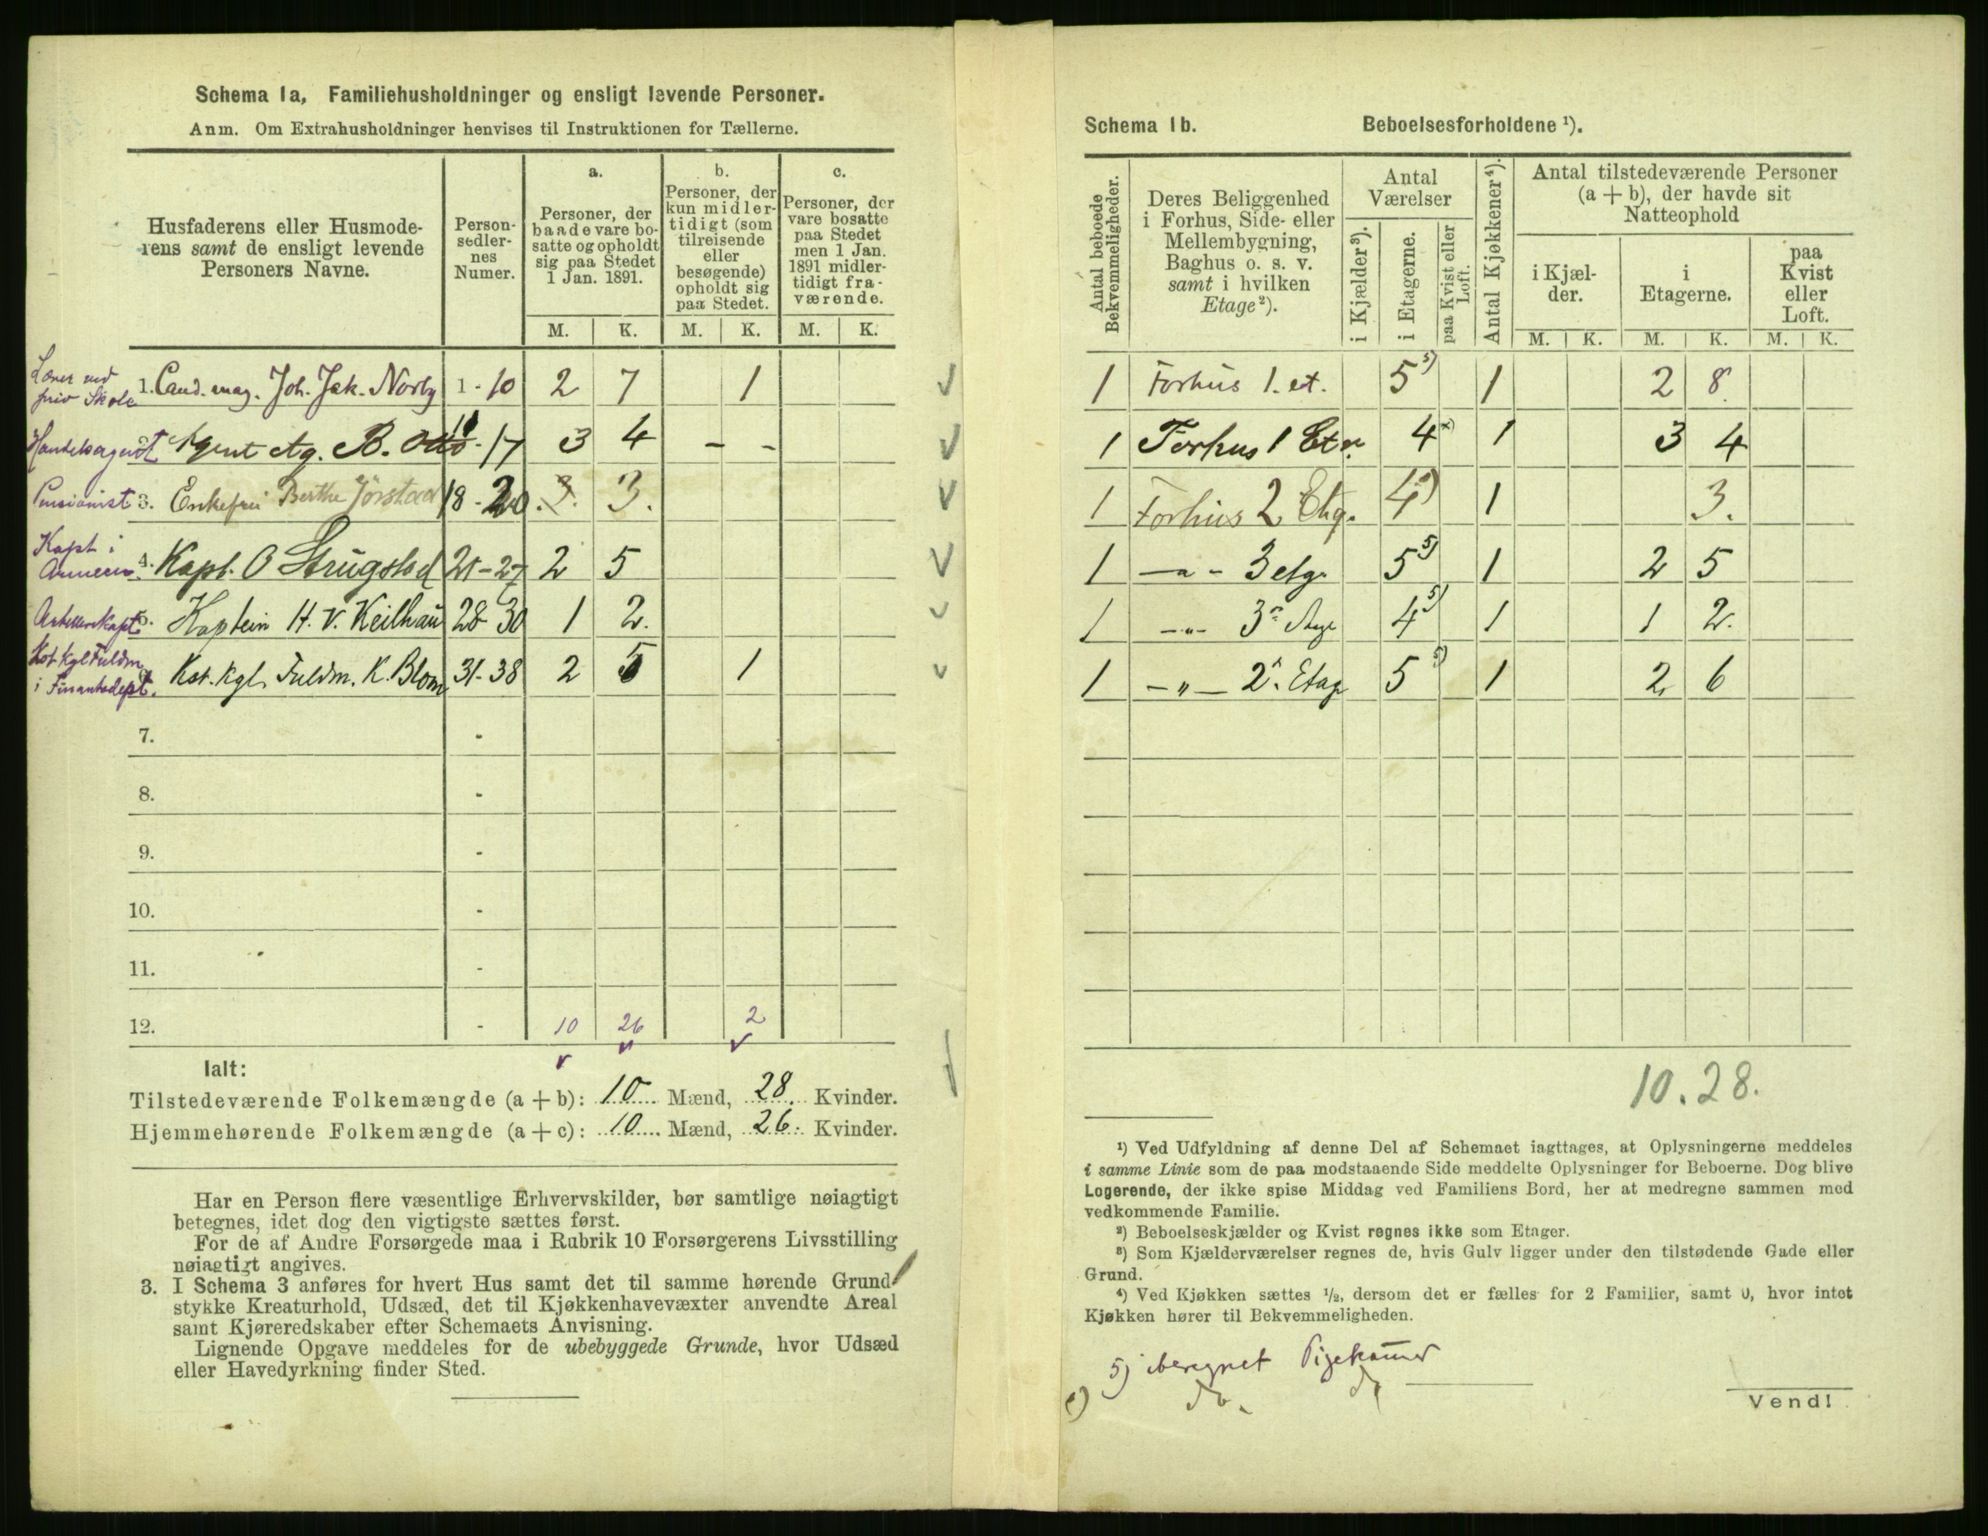 Schema 1a, Familiehusholdninger og ensligt levende Personer.
Anm. Om Extrahusholdninger henvises til Instruktionen for Tællerne.
Husfaderens eller Husmoderens samt de ensligt levende Personers Navne.
Personsedlernes Numer.
a. Personer, der baade vare bosatte og opholdt sig paa Stedet 1 Jan. 1891.
b. Personer, der kun midlertidigt (som tilreisende eller besøgende) opholdt sig paa Stedet.
c. Personer, der vare bosatte paa Stedet men 1 Jan. 1891 midlertidigt fraværende.
M. K. M. K. M. K.
Lærer ved priv Skole 1. Cand. mag. Joh. Jak. Norby 1 - 10 2 7 1
Handelsagent Agent Ag. B. Otto 11 - 17 3 4 - -
Pensionist 3. Enkefru Berthe Jørstad 18 - 20 3. 3.
Kapt i Armeen 4. Kapt. O Strugstad 21 - 27 2 5
Artillerikapt 5. Kaptein H. V. Keilhau 28 30 1 2.
Kst Kgl Fuldm i Finantsdept. Kst. Kgl. Fuldm. K. Blom 31 - 38 2 5 1
7. -
8. -
9. -
10. -
11. -
12. - 10 26 2
Ialt:
Tilstedeværende Folkemængde (a + b): 10 Mænd, 28. Kvinder.
Hjemmehørende Folkemængde (a + c): 10 Mænd, 26. Kvinder.
Har en Person flere væsentlige Erhvervskilder, bør samtlige nøiagtigt
betegnes, idet dog den vigtigste sættes først.
For de af Andre Forsørgede maa i Rubrik 10 Forsørgerens Livsstilling
nøiagtigt angives.
3. I Schema 3 anføres for hvert Hus samt det til samme hørende Grund
stykke Kreaturhold, Udsæd, det til Kjøkkenhavevæxter anvendte Areal
samt Kjøreredskaber efter Schemaets Anvisning.
Lignende Opgave meddeles for de ubebyggede Grunde, hvor Udsæd
eller Havedyrkning finder Sted.
Schema 1b. Beboelsesforholdene ¹).
Antal beboede Bekvemmeligheder.
Deres Beliggenhed i Forhus, Side- eller Mellembygning, Baghus o. s. v. samt i hvilken Etage ²).
Antal Værelser
i Kjælder ³).
i Etagerne.
paa Kvist eller Loft.
Antal Kjøkkener ⁴).
Antal tilstedeværende Personer (a + b), der havde sit Natteophold
i Kjælder.
i Etagerne.
paa Kvist eller Loft.
M. K. M. K. M. K.
1 Forhus 1. et. 5 5) 1 2 8.
1 Forhus 1 Etg. 4 x) 1 3 4
1 Forhus 2 Etg. 4 1 3.
1 - " - 3 etg. 5 5) 1 2 5
1 - " - 3 4 5) 1 1 2.
1 - " - 2. Etage 5 5) 1 2 6
10. 28.
¹) Ved Udfyldning af denne Del af Schemaet iagttages, at Oplysningerne meddeles
i samme Linie som de paa modstaaende Side meddelte Oplysninger for Beboerne. Dog blive
Logerende, der ikke spise Middag ved Familiens Bord, her at medregne sammen med
vedkommende Familie.
²) Beboelseskjælder og Kvist regnes ikke som Etager.
³) Som Kjælderværelser regnes de, hvis Gulv ligger under den tilstødende Gade eller
Grund.
⁴) Ved Kjøkken sættes ½, dersom det er fælles for 2 Familier, samt 0, hvor intet
Kjøkken hører til Bekvemmeligheden.
5) iberegnet Pigekammer
do. do
Vend!